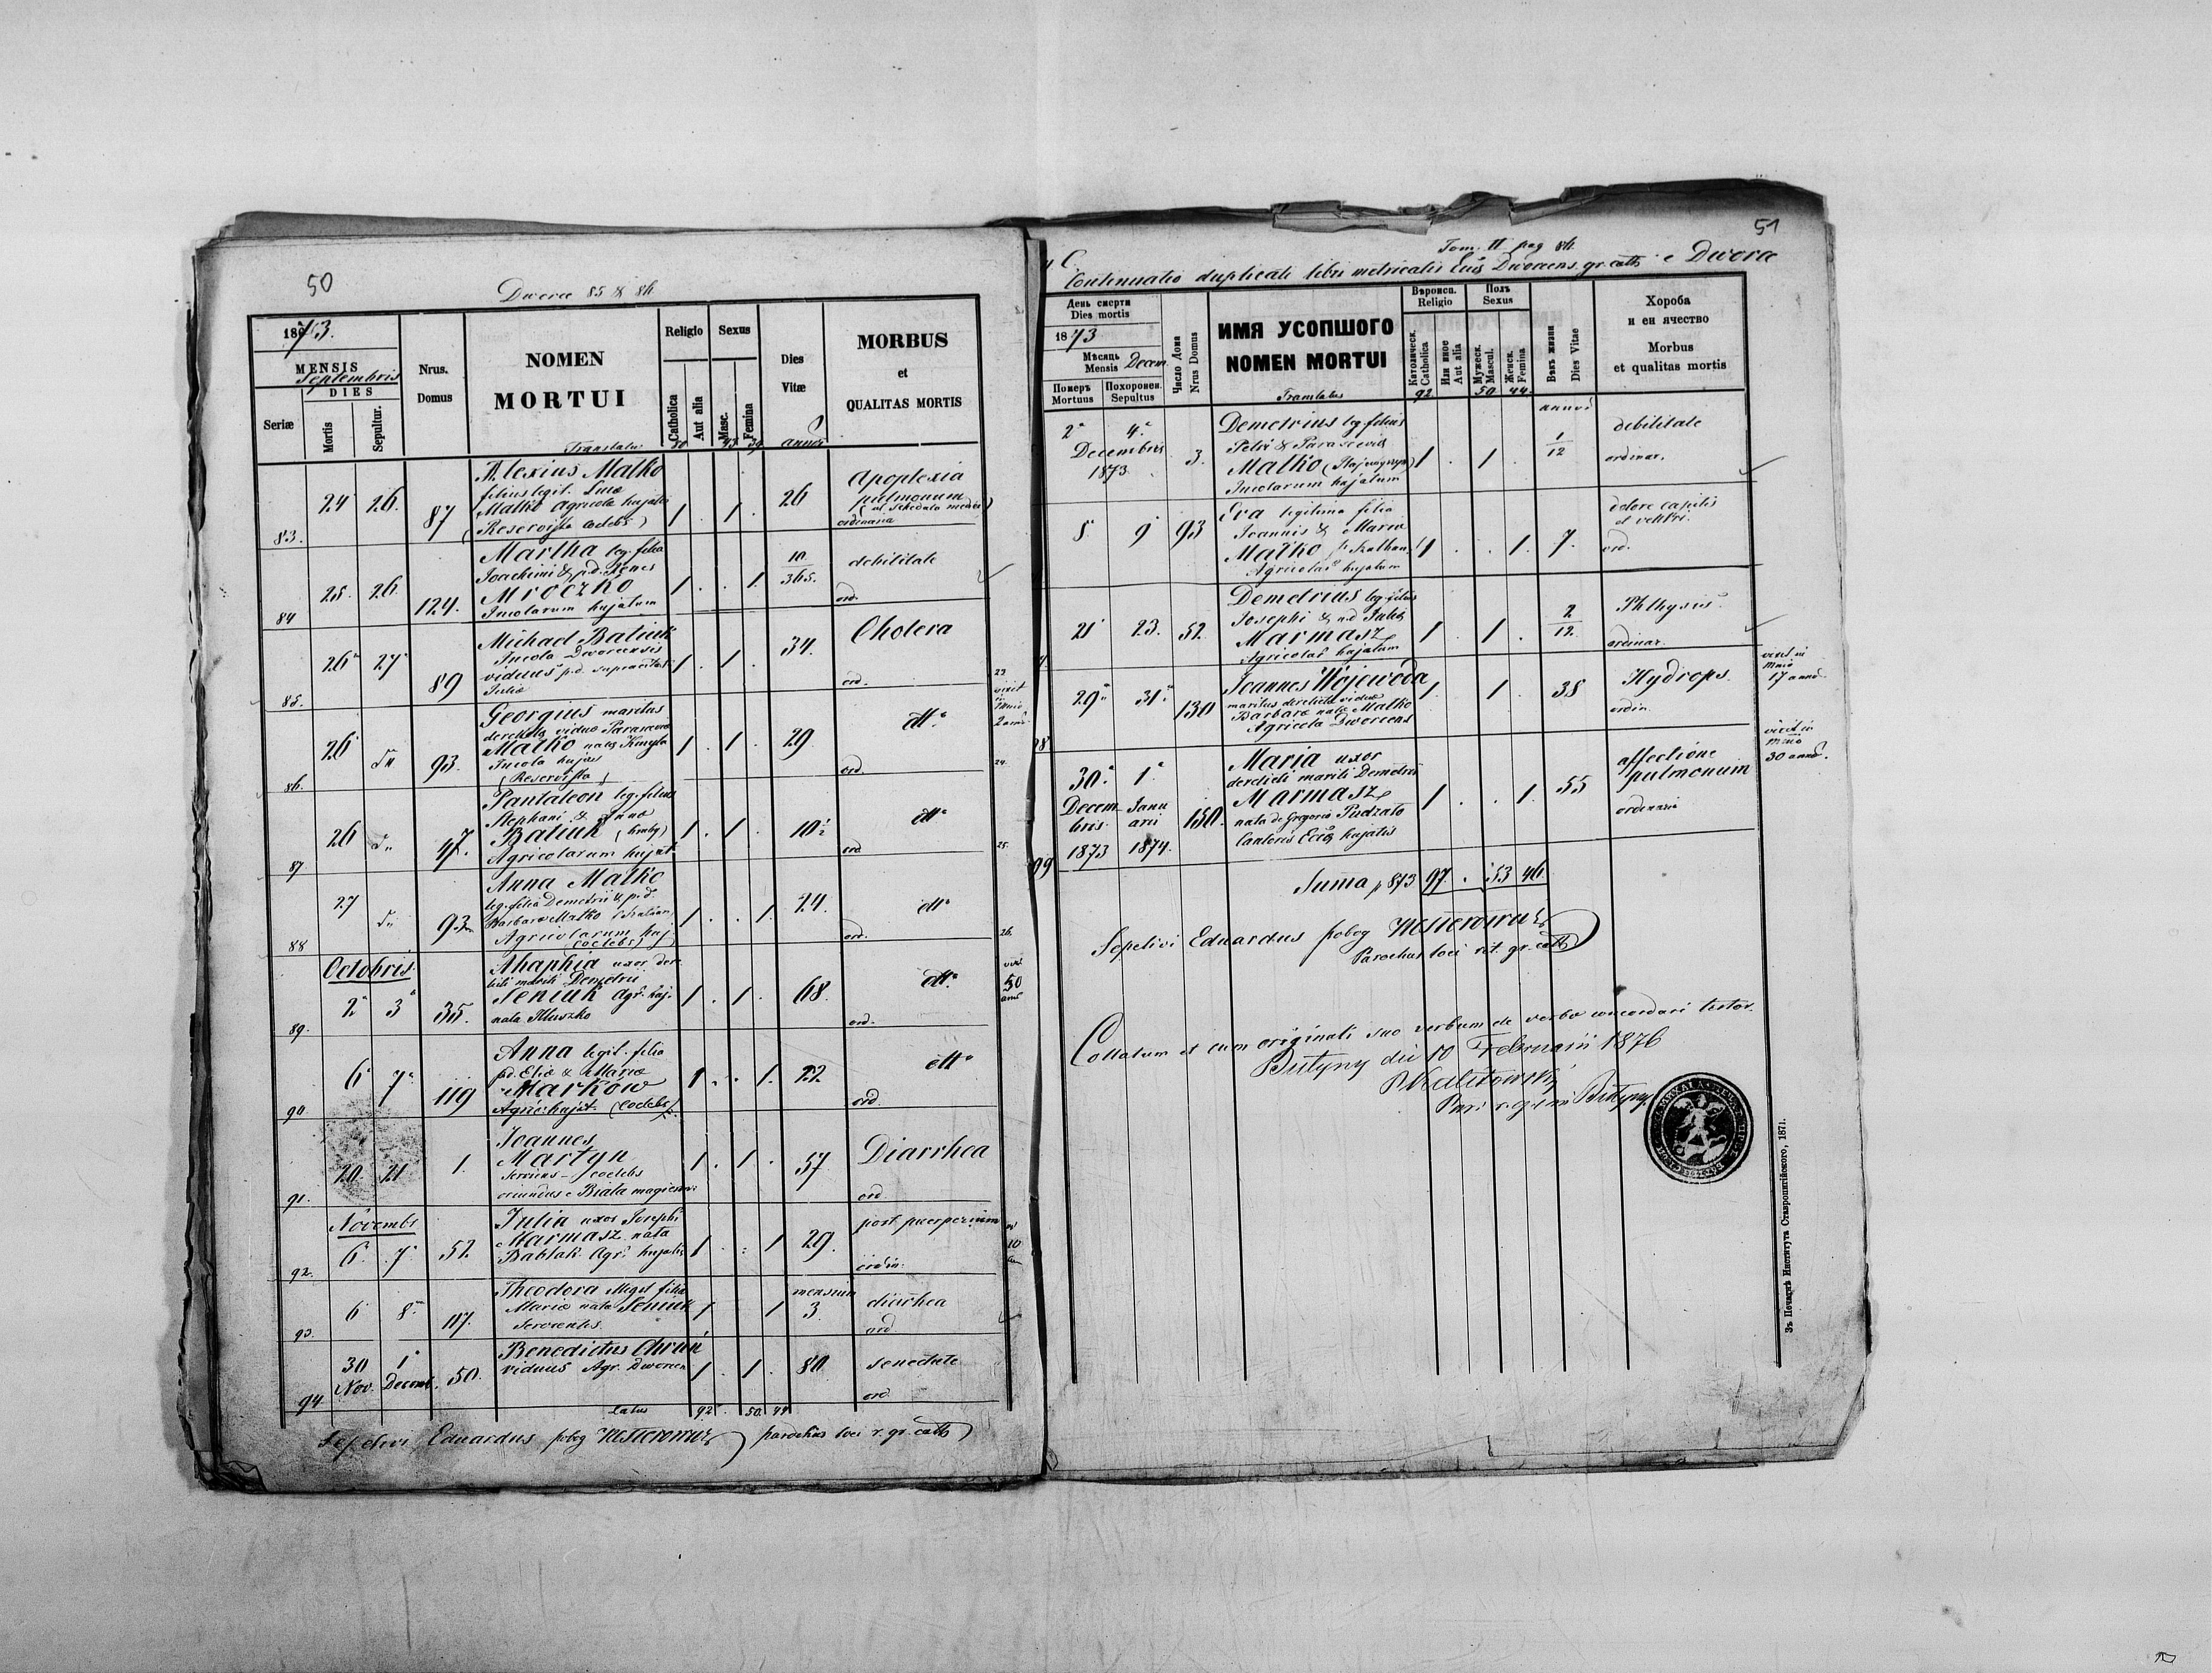 50
Dworce 85 & 86
1873.
MENSIS
Septembris
DIES
Seriæ
Mortis
Sepultur.
Nrus.
Domus
NOMEN
MORTUI
Religio
Catholica
Aut alia
Sexus
Masc.
Femina
Dies
Vitæ
MORBUS
et
QUALITAS MORTIS
annos
83. 24 26. 87
Alexius Malko
filius legit. Lucæ
Malko Agricolæ hujatis
(Reservista coelebs)
1 . 1 . 26
Apoplexia
pulmonum
ordinaria
84 25. 26. 124.
Martha leg. filia
Joachimi & p.d. Agnes
Mroczko
Incolarum hujatum
1 . . 1. 10/365.
debilitate
ord.
85. 26 27 89
Michael Batiuk
Incola Dworcensis
viduus p.d.
Juliæ
1 . 1 . 34.
Cholera
ord.
86. 26 dtt 93.
Georgius maritus
derelictæ viduæ
Malko
Incola hujas
(Reservista)
1 . 1 . 29
dtto
ord.
87 26 dtt 47.
Pantaleon leg. filius
Stephani & Annæ
Batiuk
Agricolarum hujat.
1 . 1 . 10½
dtto
ord
88 27 dtt 93.
Anna Malko
leg. filia Demetrii & p.d.
Barbaræ Malko
Agricolarum huj.
(coelebs)
1 . . 1. 24.
dtto
ord.
Octobris
89. 2 3 35.
Ahaphia uxor dere-
licti mariti Demetrii
Seniuk Agr. haj.
nata Kluszko
1 . 1 . 68.
dtto
ord.
90 6 7 119
Anna legit. filia
p.d. Eliæ & Mariæ
Markow
Agric. hujat. (coelebs)
1 . . 1. 22
dtto
ord.
91. 20 21 1.
Joannes
Martyn
servus - coelebs
oriundus e Biala
1 . 1 . 57
Diarrhea
ord.
Novembr
92. 6 7 52
Julia uxor Josephi
Marmasz nata
Bablak Agr. hujatis
1 . . 1 29.
post puerperium
ordin.
93. 6 8 117.
Theodora illegit filia
Mariæ nata Seniuk
servientis.
1 1
mensium
3.
diarrhea
ord.
94 30 Nov. 1 Decemb. 50.
Benedictus Chruń
viduus Agr. Dworcen
1 . 1 . 80
senectute
ord.
Latus 92 . 50. 44
Sepelivi Eduardus pobog Nesterowicz parochus loci r. gr. cath
51
Tom. II pag 86
Continuatio duplicati libri metricalis Dworcens. gr. cath e Dworce
День смерти
Dies mortis
1873
Мѣсяць
Mensis Decem.
Померъ
Mortuus
Похоронен.
Sepultus
Число Дома
Nrus Domus
ИМЯ УСОПШОГО
NOMEN MORTUI
Вѣроисп.
Religio
Католическ.
Catholica
Или иное
Aut alia
Полъ
Sexus
Мужеск.
Mascul.
Женск.
Femina
Вѣкъ жизни
Dies Vitae
Хороба
и еи ячество
Morbus
et qualitas mortis
Translatus 92 50 44
annos
2 4
Decembris
1873.
3.
Demetrius leg. filius
Petri & Parasceviæ
Malko
Incolarum hujatum
1 . 1 . 1/12
debilitate
ordinar.
5 9 93
Eva legitima filia
Joannis & Mariæ
Malko
Agricolar. hujatum
1 . . 1. 7.
dolore capitis
et ventri.
ord.
21 23. 52
Demetrius leg. filius
Josephi & p.d Juliæ
Marmasz
Agricolar. hujatum
1 . 1 . 2/12.
Phthysis
ordinar.
29 31 130
Joannes Wojewoda
maritus derelictæ viduæ
Barbaræ natæ Malko
Agricola Dworcens
1 . 1 . 38
Hydrops.
ordin.
vixit in
17 annos
99
30 1
Decem- Janu
bris. arii
1873 1874.
150.
Maria uxor
derelicti mariti Demetrii
Marmasz
nata de Gregorio Pudzało
Cantoris hujatis
1 . . 1. 55
affectione
pulmonum
ordinaria
vixit in
30 annos.
Suma p 873 97 . 53 46.
Sepelivi Eduardus pobog Nesterowicz
Parochus loci rit. gr. cath
Collatum et cum originali suo verbum de verbo concordari testor.
Butyny die 10 Februarii 1876
Butyny.
Зъ Печатнѣ Института Ставропигійского, 1871.